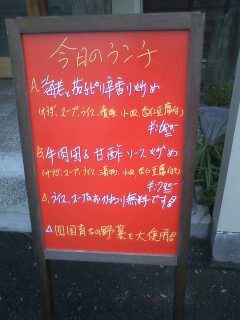 今日のランチ
A. 海老と茄子ピリ辛香り炒め
(サラダ、スープ、ライス、漬物、小皿、杏仁豆腐付)
B. 牛肉団子甘酢ソース炒め
(サラダ、スープ、ライス、漬物、小皿、杏仁豆腐付)
△ライス、スープおかわり無料です
△四国育ちの野菜を大使用